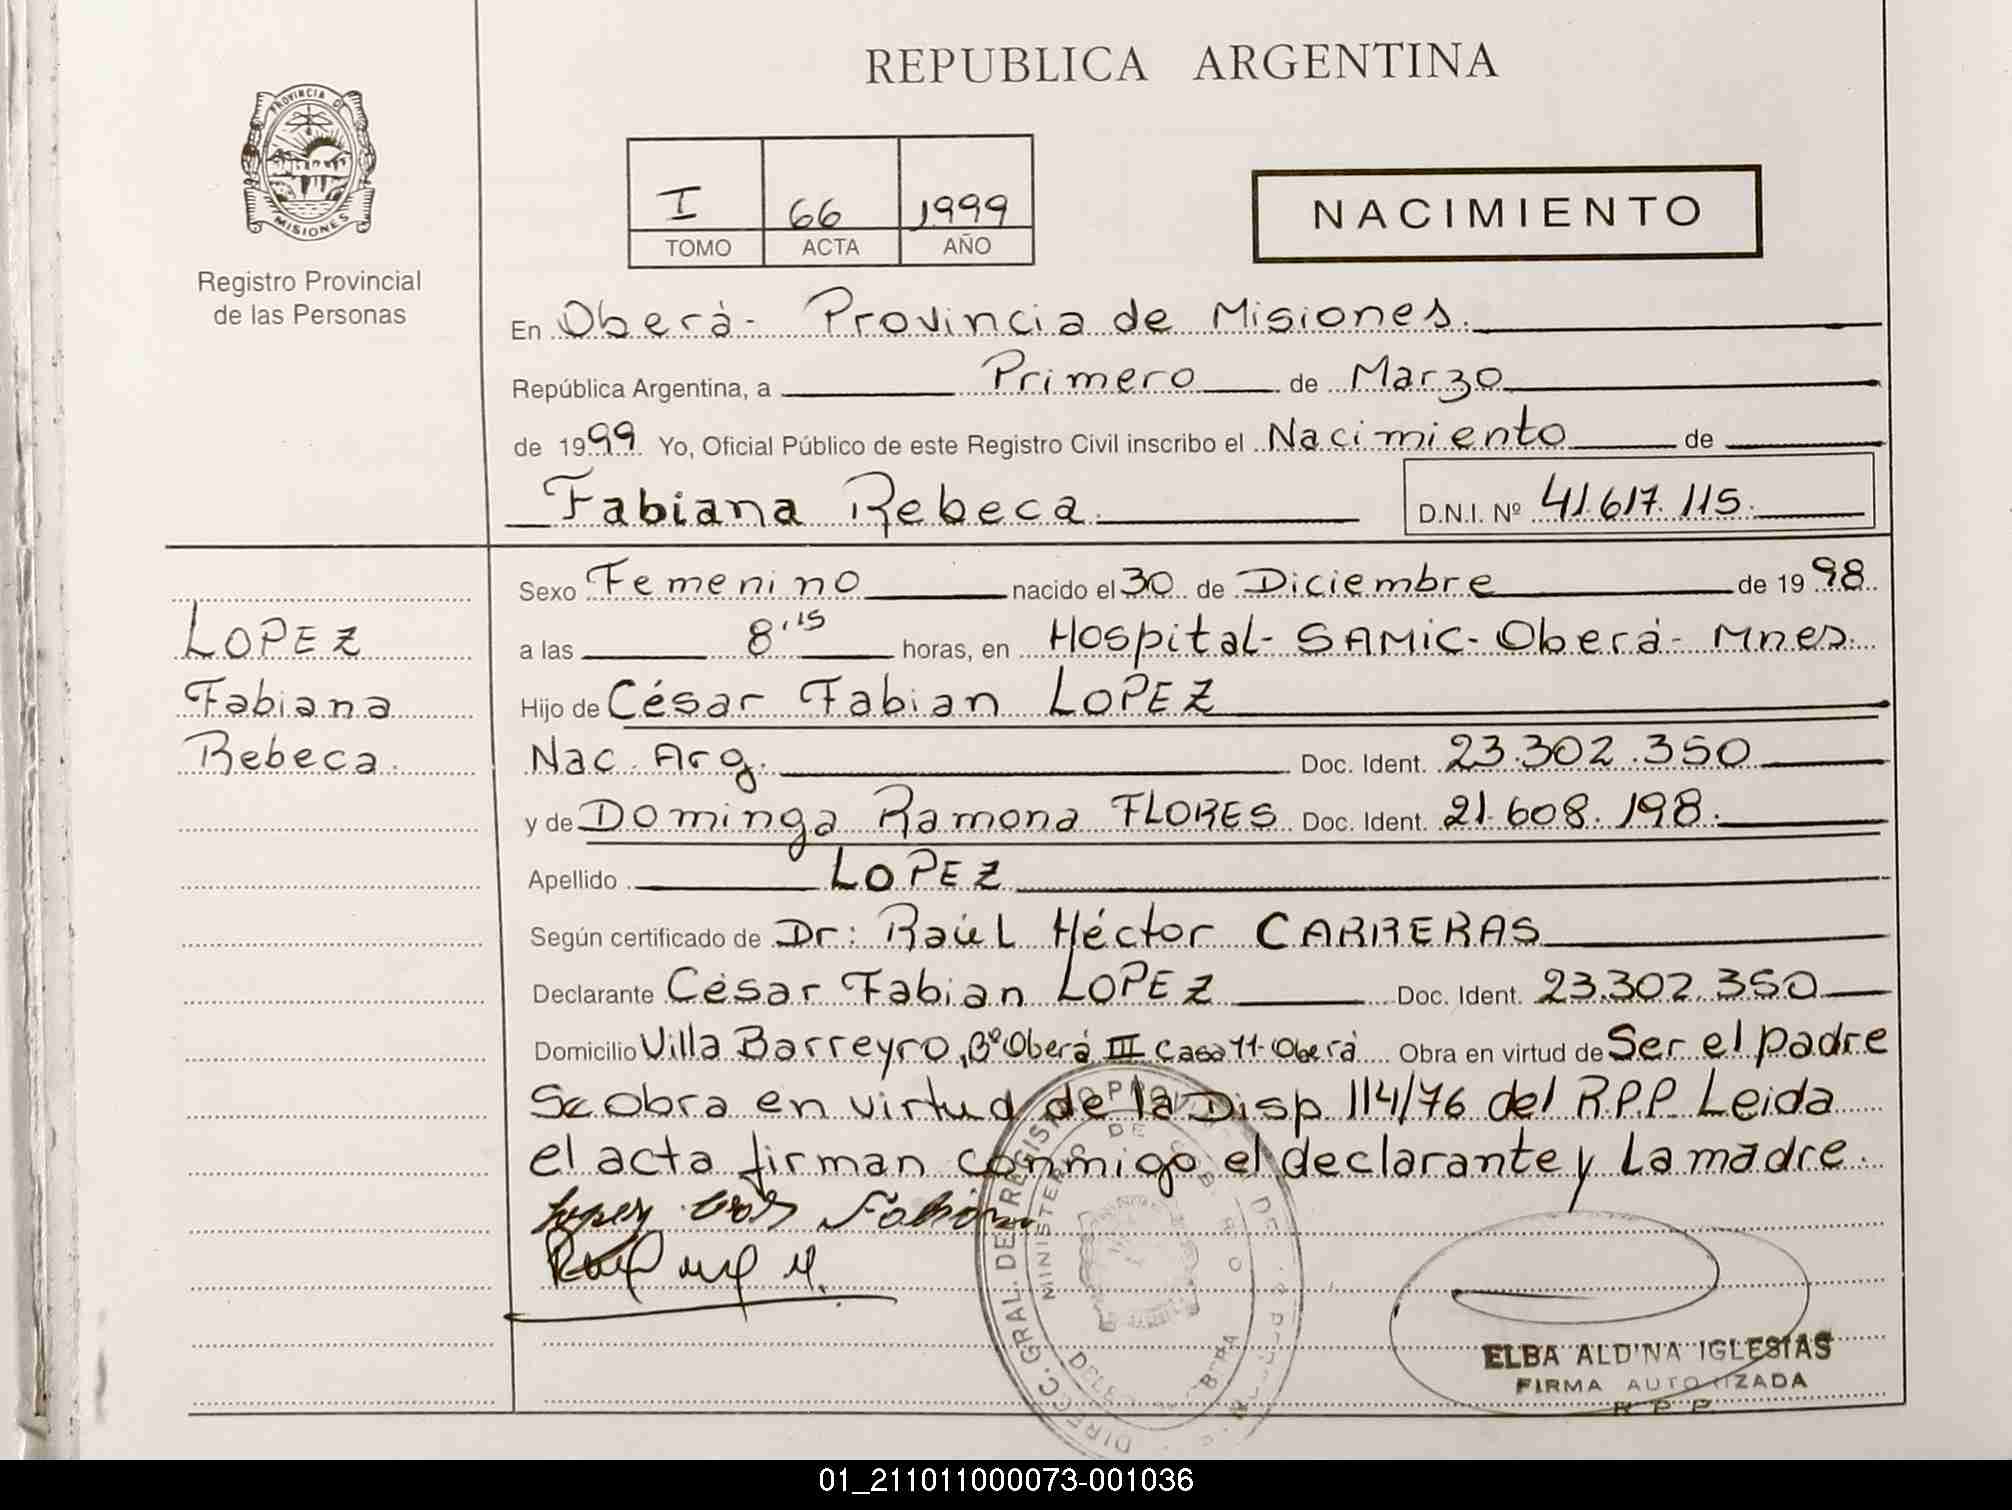 REPUBLICA ARGENTINA
PROVINCIA DE
MISIONES
Registro Provincial
de las Personas
I 66 1999
TOMO ACTA AÑO
NACIMIENTO
En Oberá- Provincia de Misiones.
República Argentina, a Primero de Marzo
de 1999 Yo, Oficial Público de este Registro Civil inscribo el Nacimiento de
Fabiana Rebeca. D.N.I. Nº 41.617.115.
LOPEZ
Fabiana
Rebeca.
Sexo Femenino nacido el 30 de Diciembre de 1998
a las 8,15 horas, en Hospital- SAMIC- Oberá- Mnes.
Hijo de César Fabian LOPEZ
Nac. Arg. Doc. Ident. 23.302.350
y de Dominga Ramona FLORES Doc. Ident. 21.608.198.
Apellido LOPEZ
Según certificado de Dr: Raúl Héctor CARRERAS
Declarante César Fabian LOPEZ Doc. Ident. 23.302.350
Domicilio Villa Barreyro, Bº Oberá III Casa 11- Oberá Obra en virtud de Ser el padre
Se obra en virtud de la Disp. 114/76 del R.P.P. Leida
el acta firman conmigo el declarante y La madre.
Lopez Fabian
DIREC. GRAL. DE REGISTRO
MINISTERIO DE GOBIERNO
ELBA ALDINA IGLESIAS
FIRMA AUTORIZADA
R.P.P.
01_211011000073-001036